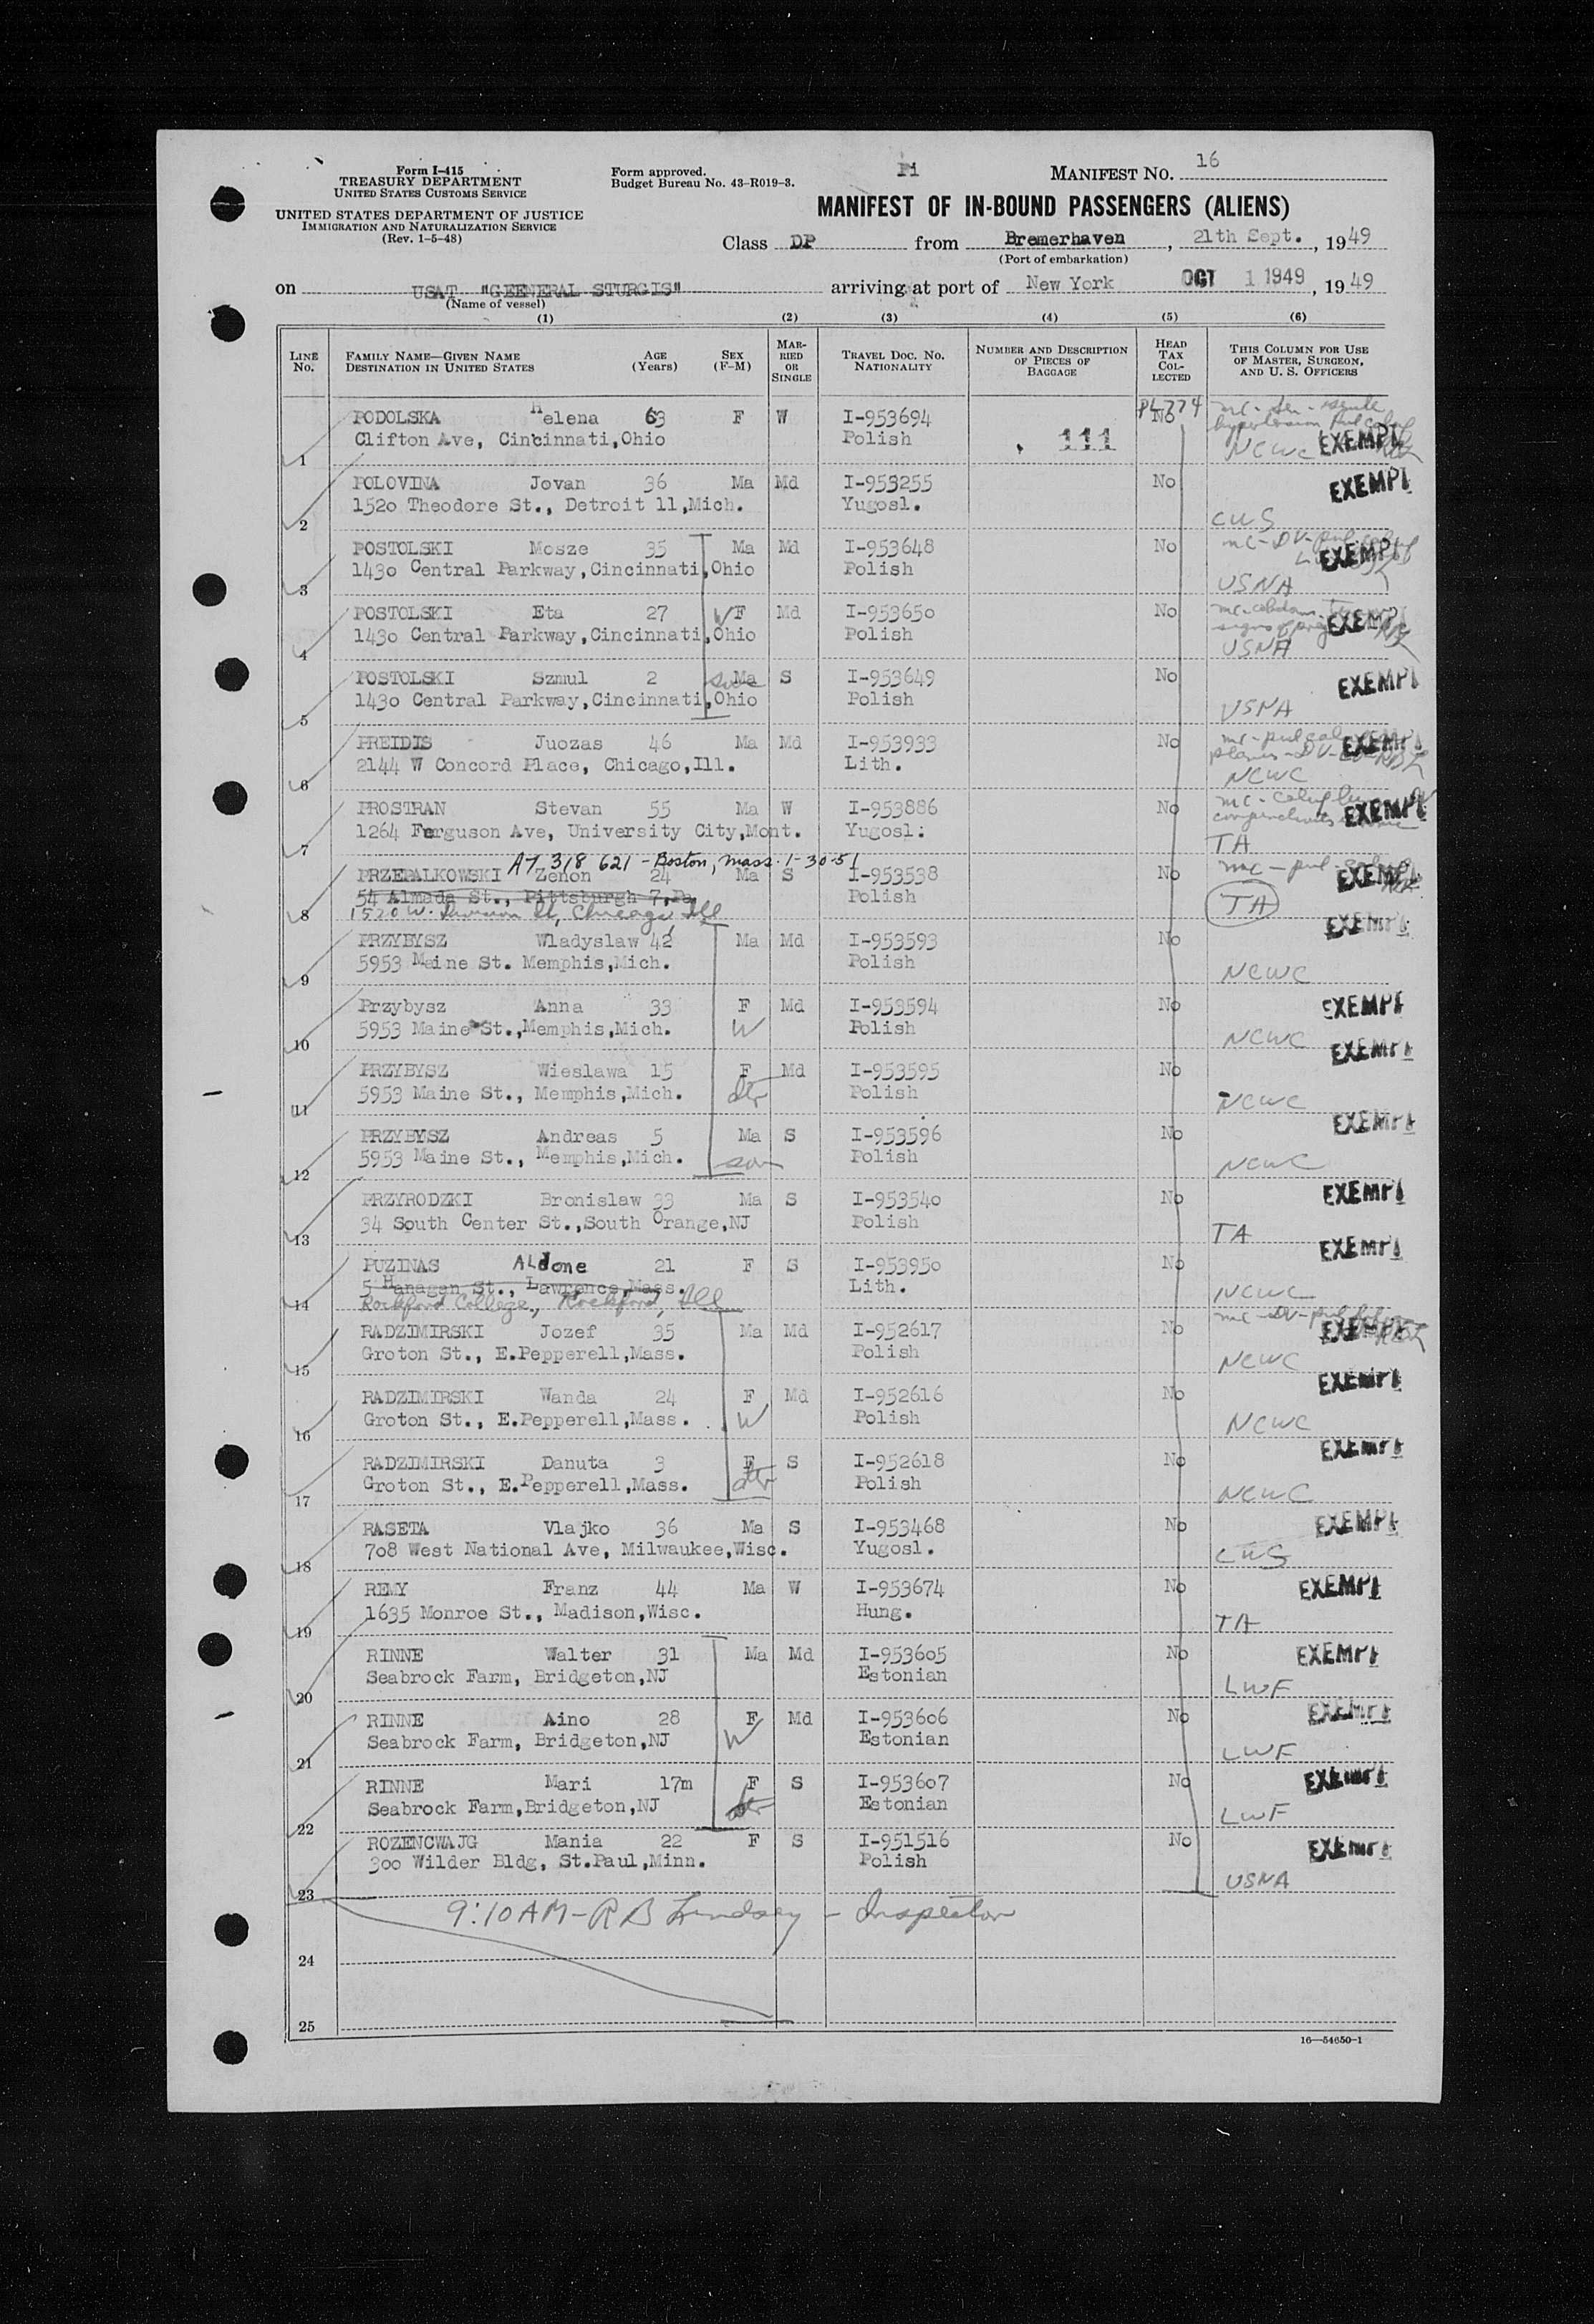 Form I-415
TREASURY DEPARTMENT
UNITED STATES CUSTOMS SERVICE
UNITED STATES DEPARTMENT OF JUSTICE
IMMIGRATION AND NATURALIZATION SERVICE
(Rev. 1-5-48)
Form approved.
Budget Bureau No. 43-R019-3.
Pi
MANIFEST NO. 16
MANIFEST OF IN-BOUND PASSENGERS (ALIENS)
Class DP from Bremerhaven, 21th Sept., 1949
(Port of embarkation)
on USAT "GEENERAL STURGIS" arriving at port of New York OCT 1 1949, 1949
(Name of vessel)
(1) (2) (3) (4) (5) (6)
LINE No. FAMILY NAME—GIVEN NAME DESTINATION IN UNITED STATES AGE (Years) SEX (F-M) MARRIED OR SINGLE TRAVEL DOC. NO. NATIONALITY NUMBER AND DESCRIPTION OF PIECES OF BAGGAGE HEAD TAX COLLECTED THIS COLUMN FOR USE OF MASTER, SURGEON, AND U. S. OFFICERS
PL774
PODOLSKA Helena 63 F W I-953694 No
1 Clifton Ave, Cincinnati,Ohio Polish 111 NCWC EXEMPT
POLOVINA Jovan 36 Ma Md I-953255 No EXEMPT
2 1520 Theodore St., Detroit 11,Mich. Yugosl. CWS
POSTOLSKI Mosze 35 Ma Md I-953648 No EXEMPT
3 1430 Central Parkway,Cincinnati,Ohio Polish USNA
POSTOLSKI Eta 27 W F Md I-953650 No EXEMPT
4 1430 Central Parkway,Cincinnati,Ohio Polish USNA
POSTOLSKI Szmul 2 son Ma S I-953649 No EXEMPT
5 1430 Central Parkway,Cincinnati,Ohio Polish USNA
PREIDIS Juozas 46 Ma Md I-953933 No EXEMPT
6 2144 W Concord Place, Chicago,Ill. Lith. NCWC
PROSTRAN Stevan 55 Ma W I-953886 No EXEMPT
7 1264 Ferguson Ave, University City,Mont. Yugosl. TA
A7 318 621 - Boston, Mass. 1-30-51
PRZEPALKOWSKI Zenon 24 Ma S I-953538 No EXEMPT
54 Almada St., Pittsburgh 7,Pa. Polish TA
8 1520 W. Division St, Chicago, Ill
PRZYBYSZ Wladyslaw 42 Ma Md I-953593 No EXEMPT
9 5953 Maine St. Memphis,Mich. Polish NCWC
Przybysz Anna 33 F Md I-953594 No EXEMPT
10 5953 Maine St.,Memphis,Mich. W Polish NCWC
PRZYBYSZ Wieslawa 15 F Md I-953595 No EXEMPT
11 5953 Maine St., Memphis,Mich. dtr Polish NCWC
PRZYBYSZ Andreas 5 Ma S I-953596 No EXEMPT
12 5953 Maine St., Memphis,Mich. son Polish NCWC
PRZYRODZKI Bronislaw 33 Ma S I-953540 No EXEMPT
13 34 South Center St.,South Orange,NJ Polish TA
PUZINAS ALdone 21 F S I-953950 No EXEMPT
5 Hanagan St., Lawrence,Mass. Lith. NCWC
14 Rockford College, Rockford, Ill
RADZIMIRSKI Jozef 35 Ma Md I-952617 No EXEMPT
15 Groton St., E.Pepperell,Mass. Polish NCWC
RADZIMIRSKI Wanda 24 F Md I-952616 No EXEMPT
16 Groton St., E.Pepperell,Mass. W Polish NCWC
RADZIMIRSKI Danuta 3 F S I-952618 No EXEMPT
17 Groton St., E.Pepperell,Mass. dtr Polish NCWC
RASETA Vlajko 36 Ma S I-953468 No EXEMPT
18 708 West National Ave, Milwaukee,Wisc. Yugosl. CWS
REMY Franz 44 Ma W I-953674 No EXEMPT
19 1635 Monroe St., Madison,Wisc. Hung. TA
RINNE Walter 31 Ma Md I-953605 No EXEMPT
20 Seabrock Farm, Bridgeton,NJ Estonian LWF
RINNE Aino 28 F Md I-953606 No EXEMPT
21 Seabrock Farm, Bridgeton,NJ W Estonian LWF
RINNE Mari 17m F S I-953607 No EXEMPT
22 Seabrock Farm,Bridgeton,NJ dtr Estonian LWF
ROZENCWAJG Mania 22 F S I-951516 No EXEMPT
23 300 Wilder Bldg, St.Paul,Minn. Polish USNA
9:10 AM - R B Lindsey - Inspector
24
25
16—54650-1